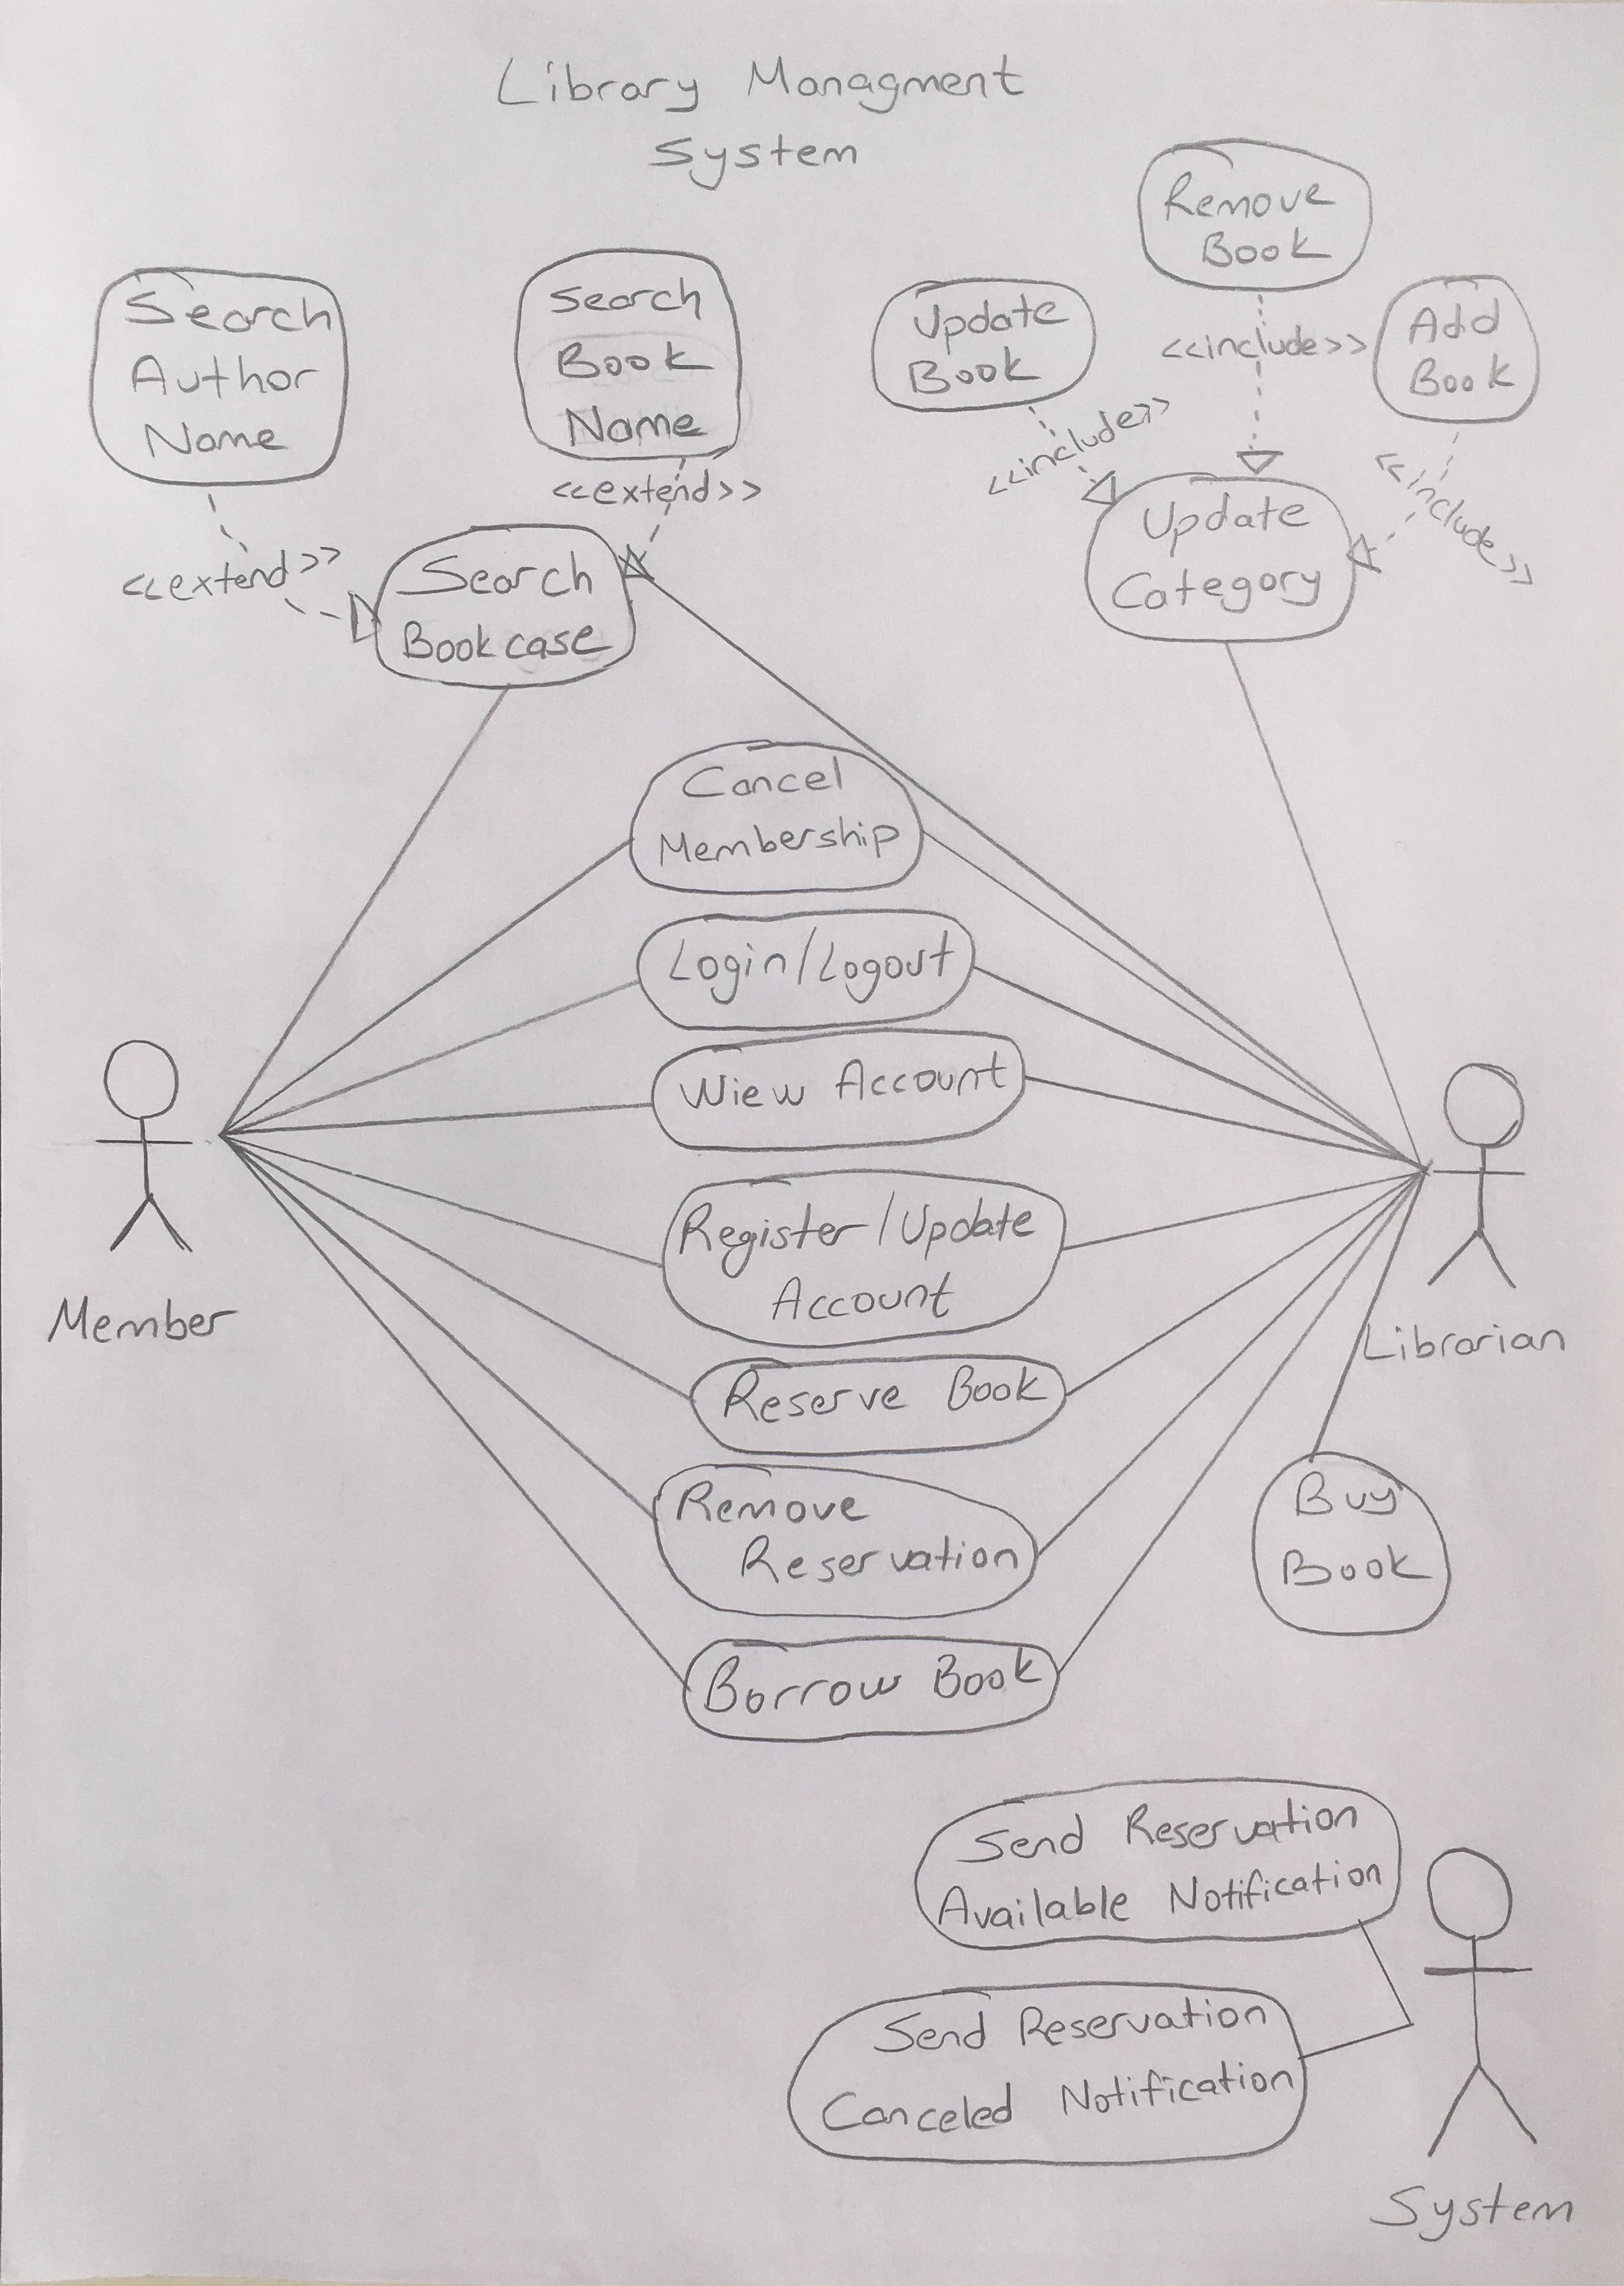 Library Managment
System
Remove
Book
Search
Author
Name
Search
Book
Name
Update
Book
<<include>>
Add
Book
<<include>>
<<include>>
<<extend>>
<<extend>>
Search
Bookcase
Update
Category
Cancel
Membership
Login/Logout
Wiew Account
Register/Update
Account
Member
Librarian
Reserve Book
Remove
Reservation
Buy
Book
Borrow Book
Send Reservation
Available Notification
Send Reservation
Canceled Notification
System